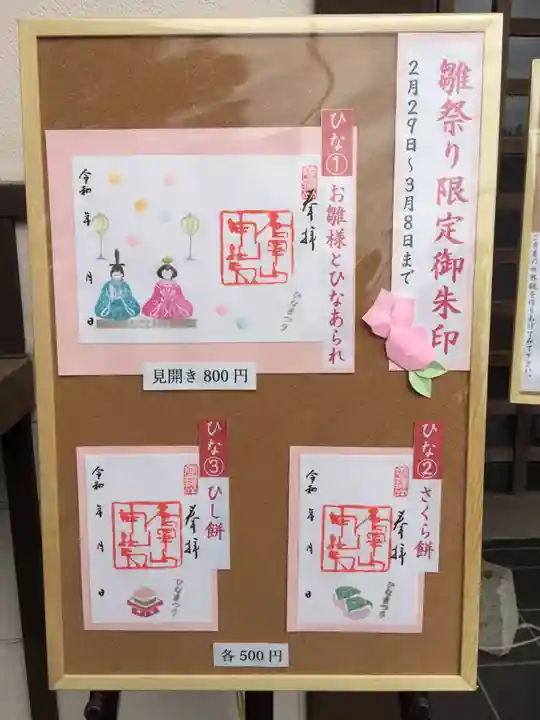 雛祭り限定御朱印
2月29日～3月8日まで
ひな① お雛様とひなあられ
奉拝
ひなまつり
令和 年 月 日
見開き 800円
ひな② さくら餅
奉拝
ひなまつり
令和 年 月 日
ひな③ ひし餅
奉拝
ひなまつり
令和 年 月 日
各 500円